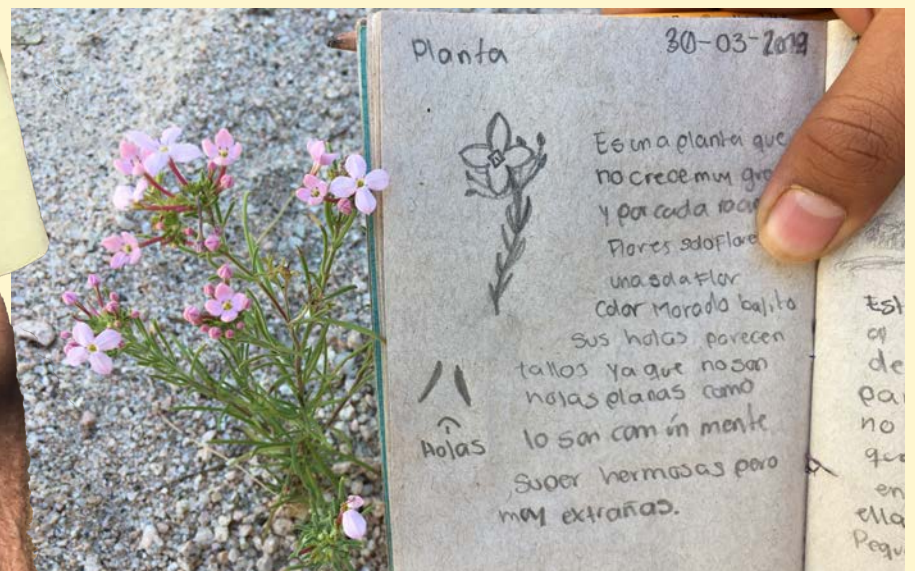 Planta
30-03-2019
Es una planta que
no crece muy
y por cada
Flores solo
una sola Flor
color Morado bajito
sus hojas parecen
tallos ya que no son
hojas planas como
lo son com ún mente
super hermosas pero
muy extrañas.
Hojas
de
no
en
ella